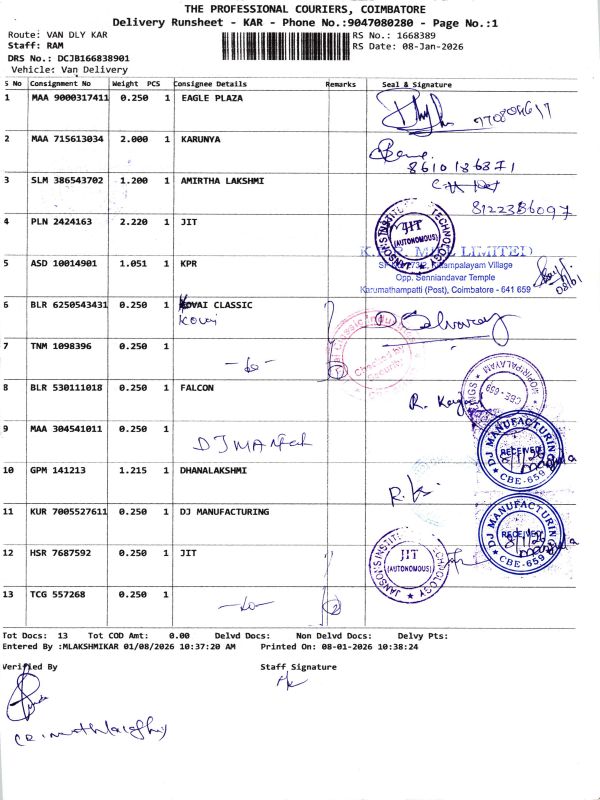 THE PROFESSIONAL COURIERS, COIMBATORE
Delivery Runsheet - KAR - Phone No.:9047080280 - Page No.:1
Route: VAN DLY KAR
RS No.: 1668389
Staff: RAM
RS Date: 08-Jan-2026
DRS No.: DCJB166838901
Vehicle: Van Delivery
S No Consignment No Weight PCS Consignee Details Remarks Seal & Signature
1 MAA 9000317411 0.250 1 EAGLE PLAZA
2 MAA 715613034 2.000 1 KARUNYA
3 SLM 386543702 1.200 1 AMIRTHA LAKSHMI
8122386097
4 PLN 2424163 2.220 1 JIT
JANSONS INSTITUTE OF TECHNOLOGY
JIT
(AUTONOMOUS)
5 ASD 10014901 1.051 1 KPR
MILL LIMITED
Opp. Senniandavar Temple
Karumathampatti (Post), Coimbatore - 641 659
6 BLR 6250543431 0.250 1 KOVAI CLASSIC
Kovai
Selvaraj
Checked by
Security
7 TNM 1098396 0.250 1
-do-
8 BLR 530111018 0.250 1 FALCON
CBE - 659
9 MAA 304541011 0.250 1
DJ MANFACT
DJ MANUFACTURING
RECEIVED
CBE-659
10 GPM 141213 1.215 1 DHANALAKSHMI
11 KUR 7005527611 0.250 1 DJ MANUFACTURING
DJ MANUFACTURING
RECEIVED
CBE-659
12 HSR 7687592 0.250 1 JIT
JANSONS INSTITUTE OF TECHNOLOGY
JIT
(AUTONOMOUS)
13 TCG 557268 0.250 1
-do-
2
Tot Docs: 13 Tot COD Amt: 0.00 Delvd Docs: Non Delvd Docs: Delvy Pts:
Entered By :MLAKSHMIKAR 01/08/2026 10:37:20 AM Printed On: 08-01-2026 10:38:24
Verified By
Staff Signature